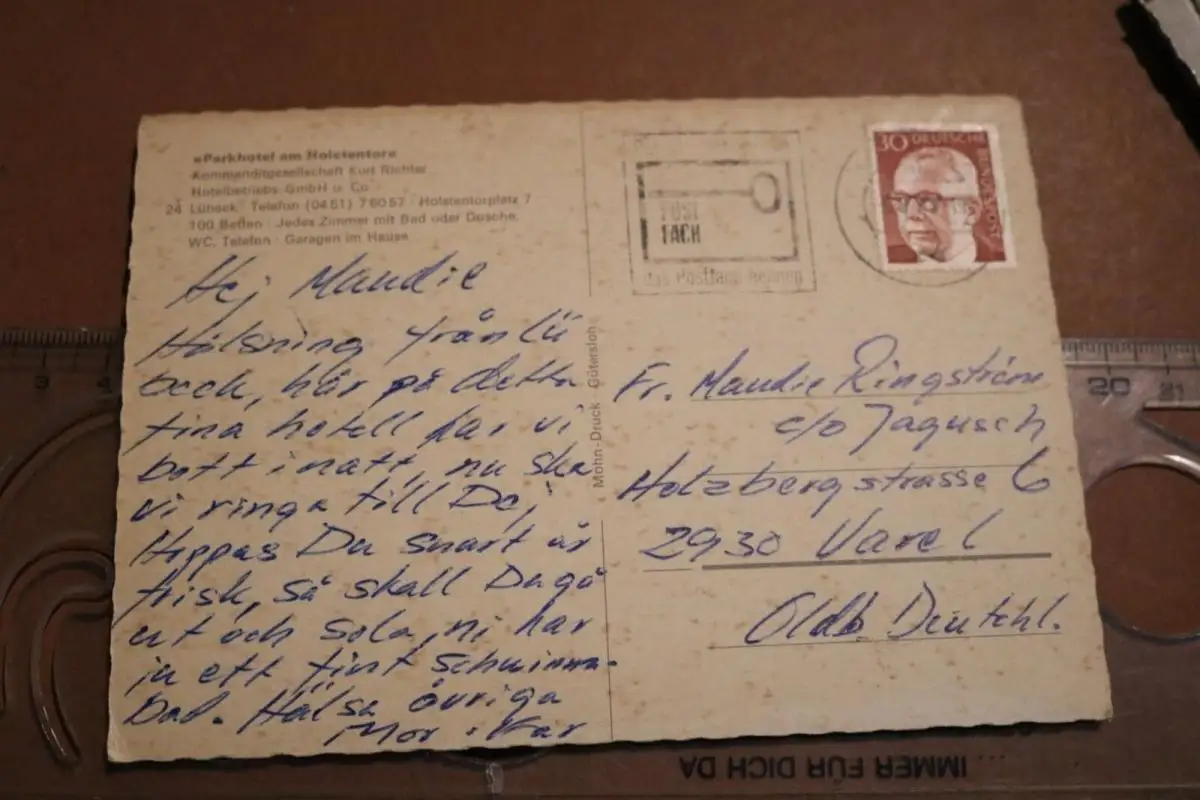 »Parkhotel am Holstentor«
Kommanditgesellschaft Kurt Richter
Hotelbetriebs GmbH u. Co
24 Lübeck · Telefon (0451) 76057 · Holstentorplatz 7
100 Betten · Jedes Zimmer mit Bad oder Dusche,
WC, Telefon · Garagen im Hause
Hej Maudie
Hälsning från Lü
beck, här på detta
fina hotell har vi
bott inatt, nu ska
vi ringa till De,
Hoppas Du snart är
frisk, så skall Du gå
ut och sola, ni har
ju ett fint Schwimm-
Bad. Hälsa övriga
Mor · Far
Mohn-Druck Gütersloh
POST
FACH
das Postfach
30 DEUTSCHE
BUNDESPOST
Fr. Maudie Ringström
c/o Jagusch
Holzbergstrasse 6
2930 Varel
Oldb Deutchl.
3 4
20 21
... IMMER FÜR DICH DA